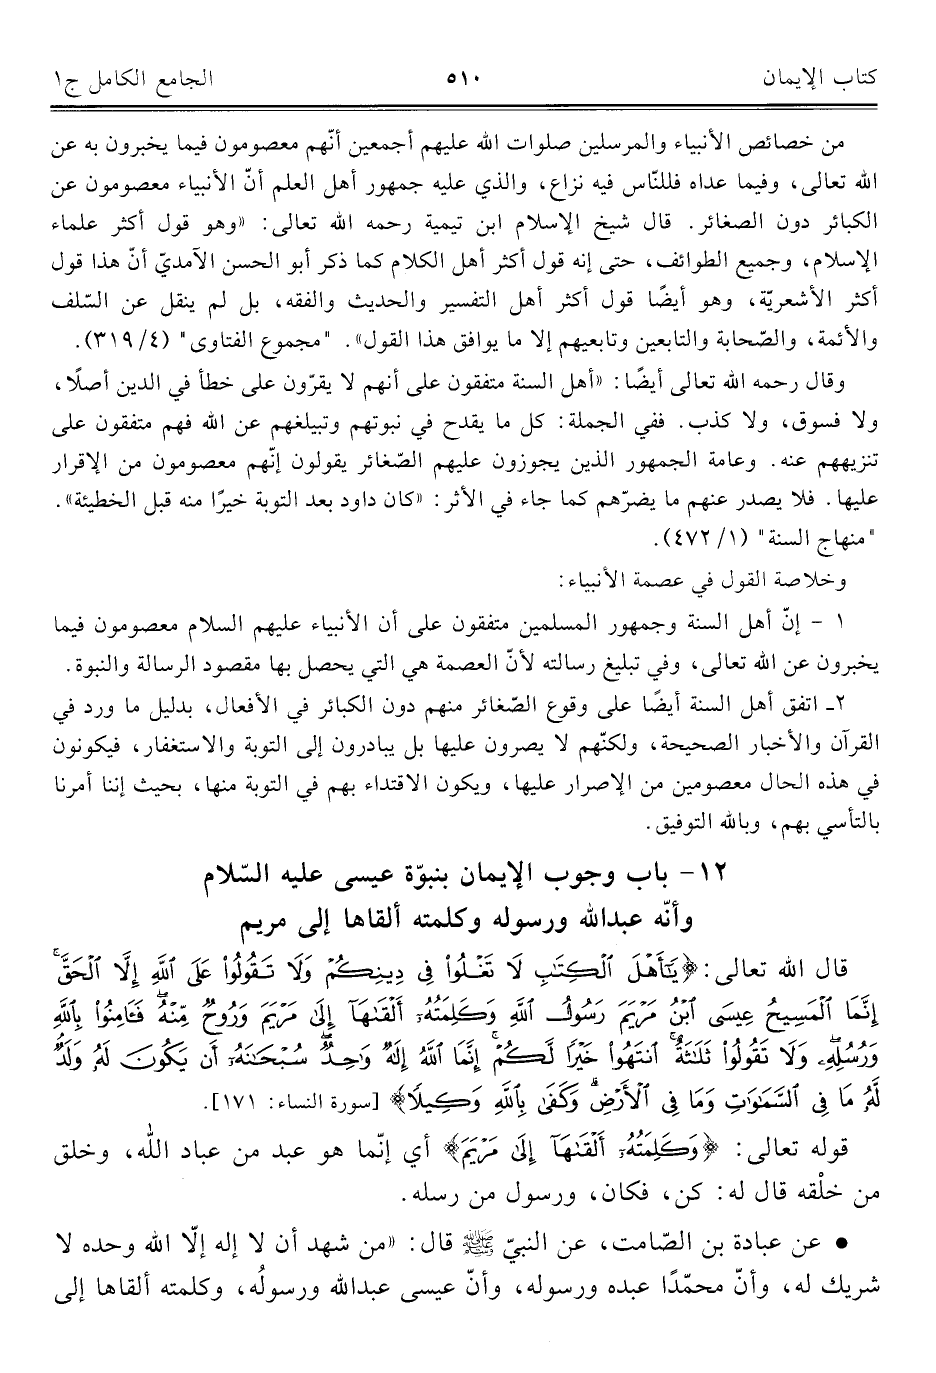 كتاب الإيمان ٥١٠ الجامع الكامل ج١
من خصائص الأنبياء والمرسلين صلوات الله عليهم أجمعين أنّهم معصومون فيما يخبرون به عن
الله تعالى، وفيما عداه فللنّاس فيه نزاع، والذي عليه جمهور أهل العلم أنّ الأنبياء معصومون عن
الكبائر دون الصغائر. قال شيخ الإسلام ابن تيمية رحمه الله تعالى: «وهو قول أكثر علماء
الإسلام، وجميع الطوائف، حتى إنه قول أكثر أهل الكلام كما ذكر أبو الحسن الآمديّ أنّ هذا قول
أكثر الأشعريّة، وهو أيضًا قول أكثر أهل التفسير والحديث والفقه، بل لم ينقل عن السّلف
والأئمة، والصّحابة والتابعين وتابعيهم إلا ما يوافق هذا القول». "مجموع الفتاوى" (٤/ ٣١٩).
وقال رحمه الله تعالى أيضًا: «أهل السنة متفقون على أنهم لا يقرّون على خطأ في الدين أصلًا،
ولا فسوق، ولا كذب. ففي الجملة: كل ما يقدح في نبوتهم وتبيلغهم عن الله فهم متفقون على
تنزيههم عنه. وعامة الجمهور الذين يجوزون عليهم الصّغائر يقولون إنّهم معصومون من الإقرار
عليها. فلا يصدر عنهم ما يضرّهم كما جاء في الأثر: «كان داود بعد التوبة خيرًا منه قبل الخطيئة».
"منهاج السنة" (١/ ٤٧٢).
وخلاصة القول في عصمة الأنبياء:
١ - إنّ أهل السنة وجمهور المسلمين متفقون على أن الأنبياء عليهم السلام معصومون فيما
يخبرون عن الله تعالى، وفي تبليغ رسالته لأنّ العصمة هي التي يحصل بها مقصود الرسالة والنبوة.
٢ـ اتفق أهل السنة أيضًا على وقوع الصّغائر منهم دون الكبائر في الأفعال، بدليل ما ورد في
القرآن والأخبار الصحيحة، ولكنّهم لا يصرون عليها بل يبادرون إلى التوبة والاستغفار، فيكونون
في هذه الحال معصومين من الإصرار عليها، ويكون الاقتداء بهم في التوبة منها، بحيث إننا أمرنا
بالتأسي بهم، وبالله التوفيق.
١٢- باب وجوب الإيمان بنبوّة عيسى عليه السّلام
وأنّه عبدالله ورسوله وكلمته ألقاها إلى مريم
قال الله تعالى: ﴿يَٰٓأَهْلَ ٱلْكِتَٰبِ لَا تَغْلُوا۟ فِى دِينِكُمْ وَلَا تَقُولُوا۟ عَلَى ٱللَّهِ إِلَّا ٱلْحَقَّ ۚ
إِنَّمَا ٱلْمَسِيحُ عِيسَى ٱبْنُ مَرْيَمَ رَسُولُ ٱللَّهِ وَكَلِمَتُهُۥٓ أَلْقَىٰهَآ إِلَىٰ مَرْيَمَ وَرُوحٌ مِّنْهُ ۖ فَـَٔامِنُوا۟ بِٱللَّهِ
وَرُسُلِهِۦ ۖ وَلَا تَقُولُوا۟ ثَلَٰثَةٌ ۚ ٱنتَهُوا۟ خَيْرًا لَّكُمْ ۚ إِنَّمَا ٱللَّهُ إِلَٰهٌ وَٰحِدٌ ۖ سُبْحَٰنَهُۥٓ أَن يَكُونَ لَهُۥ وَلَدٌ ۘ
لَّهُۥ مَا فِى ٱلسَّمَٰوَٰتِ وَمَا فِى ٱلْأَرْضِ ۗ وَكَفَىٰ بِٱللَّهِ وَكِيلًا﴾ [سورة النساء: ١٧١].
قوله تعالى: ﴿وَكَلِمَتُهُۥٓ أَلْقَىٰهَآ إِلَىٰ مَرْيَمَ﴾ أي إنّما هو عبد من عباد الله، وخلق
من خلْقه قال له: كن، فكان، ورسول من رسله.
● عن عبادة بن الصّامت، عن النبيّ ﷺ قال: «من شهد أن لا إله إلّا الله وحده لا
شريك له، وأنّ محمّدًا عبده ورسوله، وأنّ عيسى عبدالله ورسولُه، وكلمته ألقاها إلى